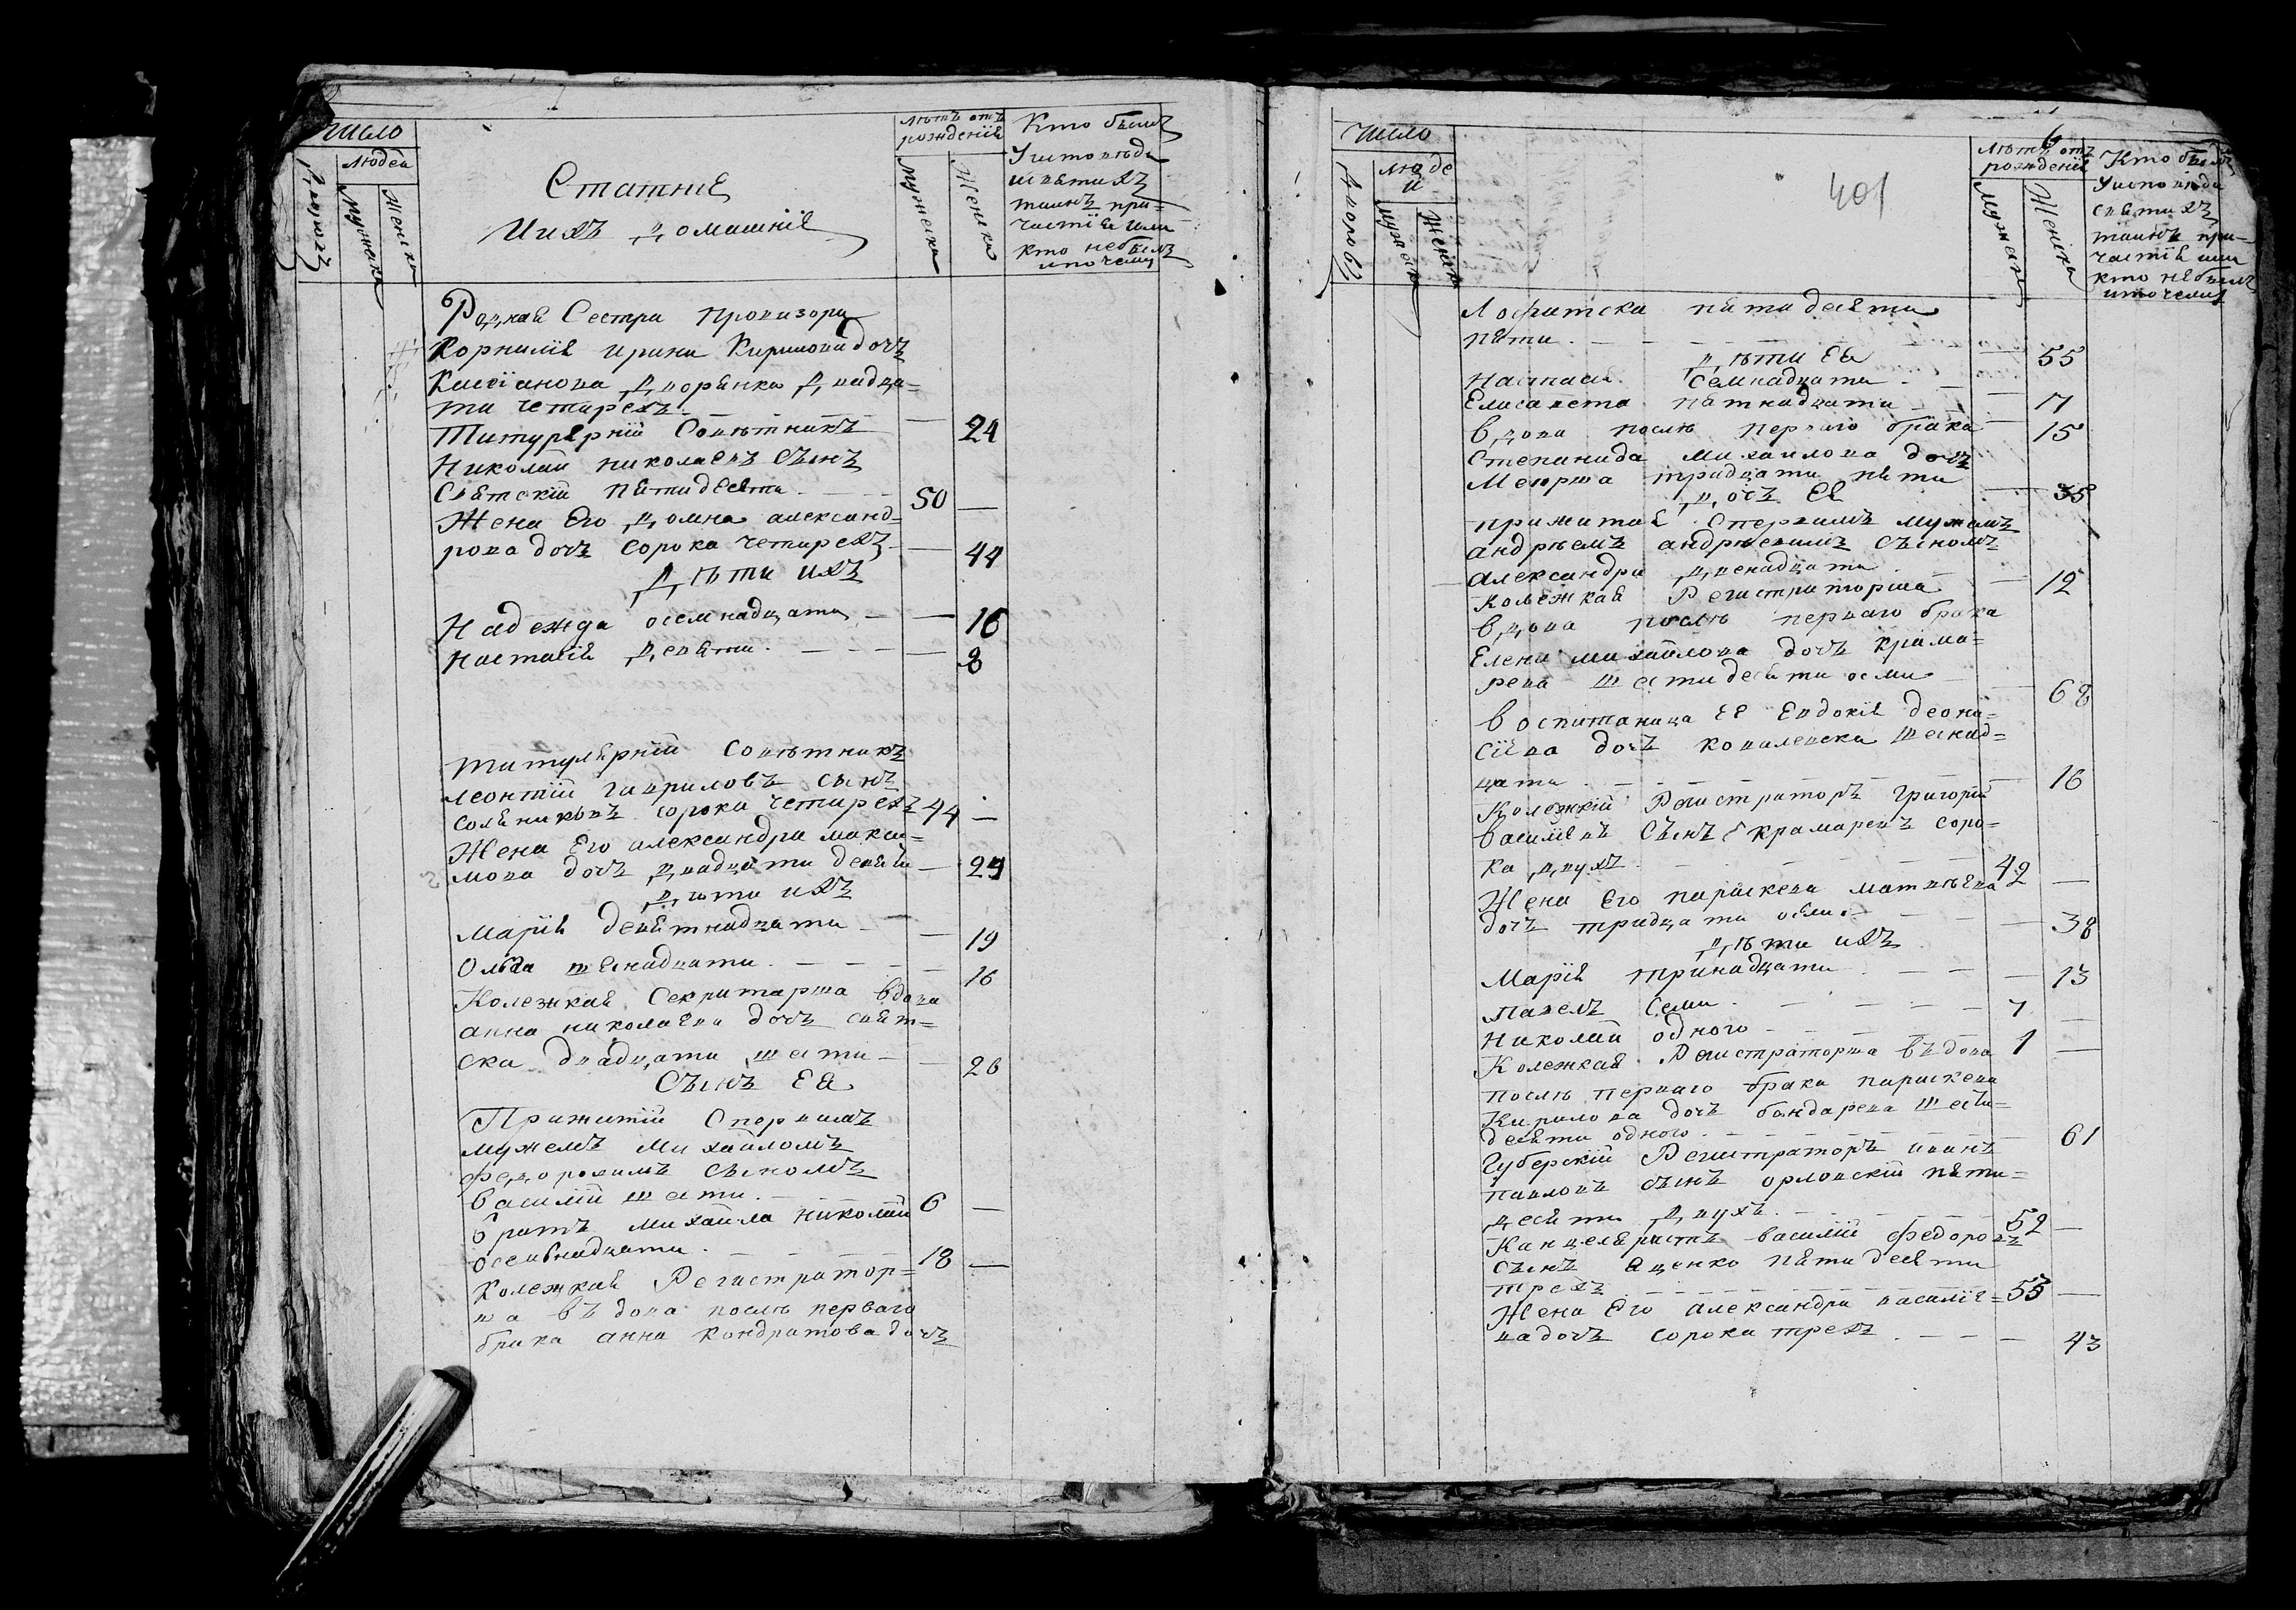 число
людей
Дворовъ
мужеска
женска
Статние
ииХъ Домашніе
лѣтъ отъ
рожденія
мужеска
Женска
Кто былъ
У исповѣди
исвятихъ
таинъ при=
частія или
кто небылъ
ипочему
Родная Сестра Провизора
Корнилія ирина Кирилова дочъ
Касіанова Дворянка Двадца=
ти четирехъ 24
Титулярній Совѣтникъ
Николай николаевъ Сынъ
Святскій пятидесяти 50
Жена Его Домна александ=
рова дочъ сорока четирехъ 44
Дѣти ихъ
Надежда осемнадцати 16
настасія Девяти 8
титулярній Совѣтникъ
леонтій гавриловъ сынъ
солениковъ сорока четирехъ 44
Жена Его александра макси=
мова дочъ Двадцати девяти 29
Дѣти ихъ
Марія девятнадцати 19
Ольга шеснадцати 16
Колезкая Секритарша вдова
анна николаева дочъ свят=
ска двадцати шести 26
Сынъ Ея
Прижитій Спервимъ
мужемъ Михайломъ
федоровимъ сыномъ
василій шести 6
братъ михайла николай
осемнадцати 18
Колежкая Регистратор=
ша въдова послѣ перваго
брака анна кондратова дочъ
6
401
число
людей
Дворовъ
мужеска
женска
Лѣтъ отъ
рожденія
Мужеска
Женска
Кто былъ
У исповѣди
святихъ
таинъ при=
частія или
кто небылъ
ипочему
Лофитска пятидесяти
пяти 55
Дѣти Ея
настасія Семнадцати 17
Елисавета пятнадцати 15
вдова послѣ перваго брака
Степанида михайлова дочъ
Меюрша традцати пяти 35
Дочъ Ея
прижитая Спервимъ мужемъ
андрѣемъ андрѣевимъ Сыномъ
александра Двенадцати 12
Колежкая Регистраторша
вдова послѣ перваго брака
Елена михайлова дочъ крама=
рева шестидесяти осми 68
воспитаница Ея Евдокія деони=
сіева дочъ ковалевска шеснад=
цати 16
Колежкій Регистраторъ григорій
василіевъ Сынъ крамаревъ соро=
ка двухъ 42
Жена Его параскева матвѣева
дочъ традцати осми 38
Дѣти ихъ
Марія тринадцати 13
павелъ Семи 7
николай одного 1
Колежкая Регистраторша въдова
послѣ перваго брака параскева
Кирилова дочъ бондарева шести=
десяти одного 61
Губерскій Регистраторъ иванъ
павловъ сынъ орловскій пяти=
десяти Двухъ 52
Канцеляристъ василій федоровъ
сынъ яценко пятидесяти
трехъ 53
Жена Его александра василіе=
ва дочъ сорока трехъ 43